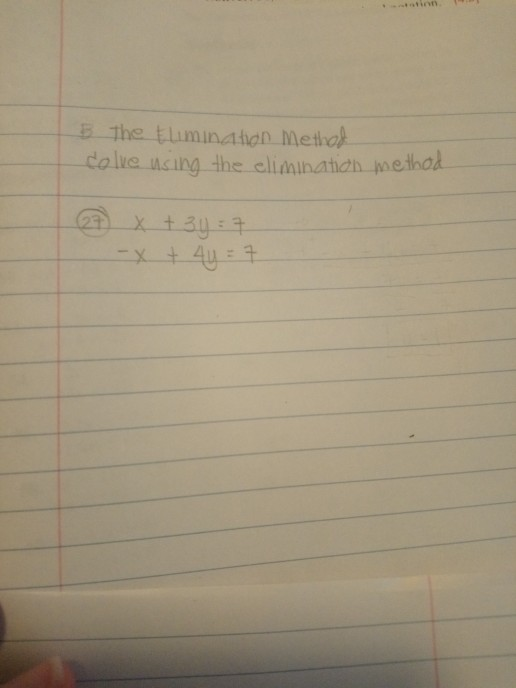 B The Elimination Method
Solve using the elimination method
27 x + 3y = 7
-x + 4y = 7